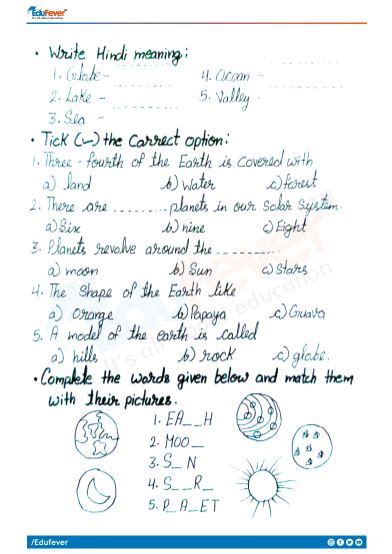 EduFever
It's all about education
• Write Hindi meaning:
1. Globe - 4. Ocean -
2. Lake - 5. Valley -
3. Sea -
• Tick (✓) the Correct option:
1. Three-fourth of the Earth is Covered with
a) land b) Water c) forest
2. There are ......... planets in our Solar System.
a) Six b) nine c) Eight
3. Planets revolve around the ..........
a) moon b) Sun c) Stars
4. The Shape of the Earth like
a) Orange b) Papaya c) Guava
5. A model of the earth is called
a) hills b) rock c) globe.
• Complete the words given below and match them
with their pictures.
1. EA__H
2. MOO_
3. S_N
4. S__R_
5. P_A_ET
EduFever
It's all about education
/Edufever